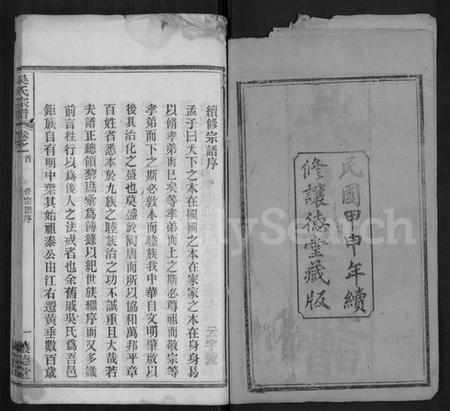 民國甲申年續
修讓德堂藏版
續修宗譜序
孟子曰天下之本在國國之本在家家之本在身身曷
以脩孝弟而已矣等孝弟而上之斯必尊祖而敬宗等
孝弟而下之斯必敦本而睦族我中華自文明肇啟以
後其治化之盛也莫盛於陶唐而所以協和萬邦平章
百姓者悉本於九族之睦族治之功不誠重且大哉若
夫譜正總領黎庶彙為簿錄以紀世族繼序而又多識
前言往行以為後人之法戒者也余舊戚吳氏為吾邑
鉅族自有明中葉其始祖泰公由江右遷黃垂數百歲
吳氏宗譜
卷之一
首
修宗譜序
一
讓德堂
云字號
FamilySearch